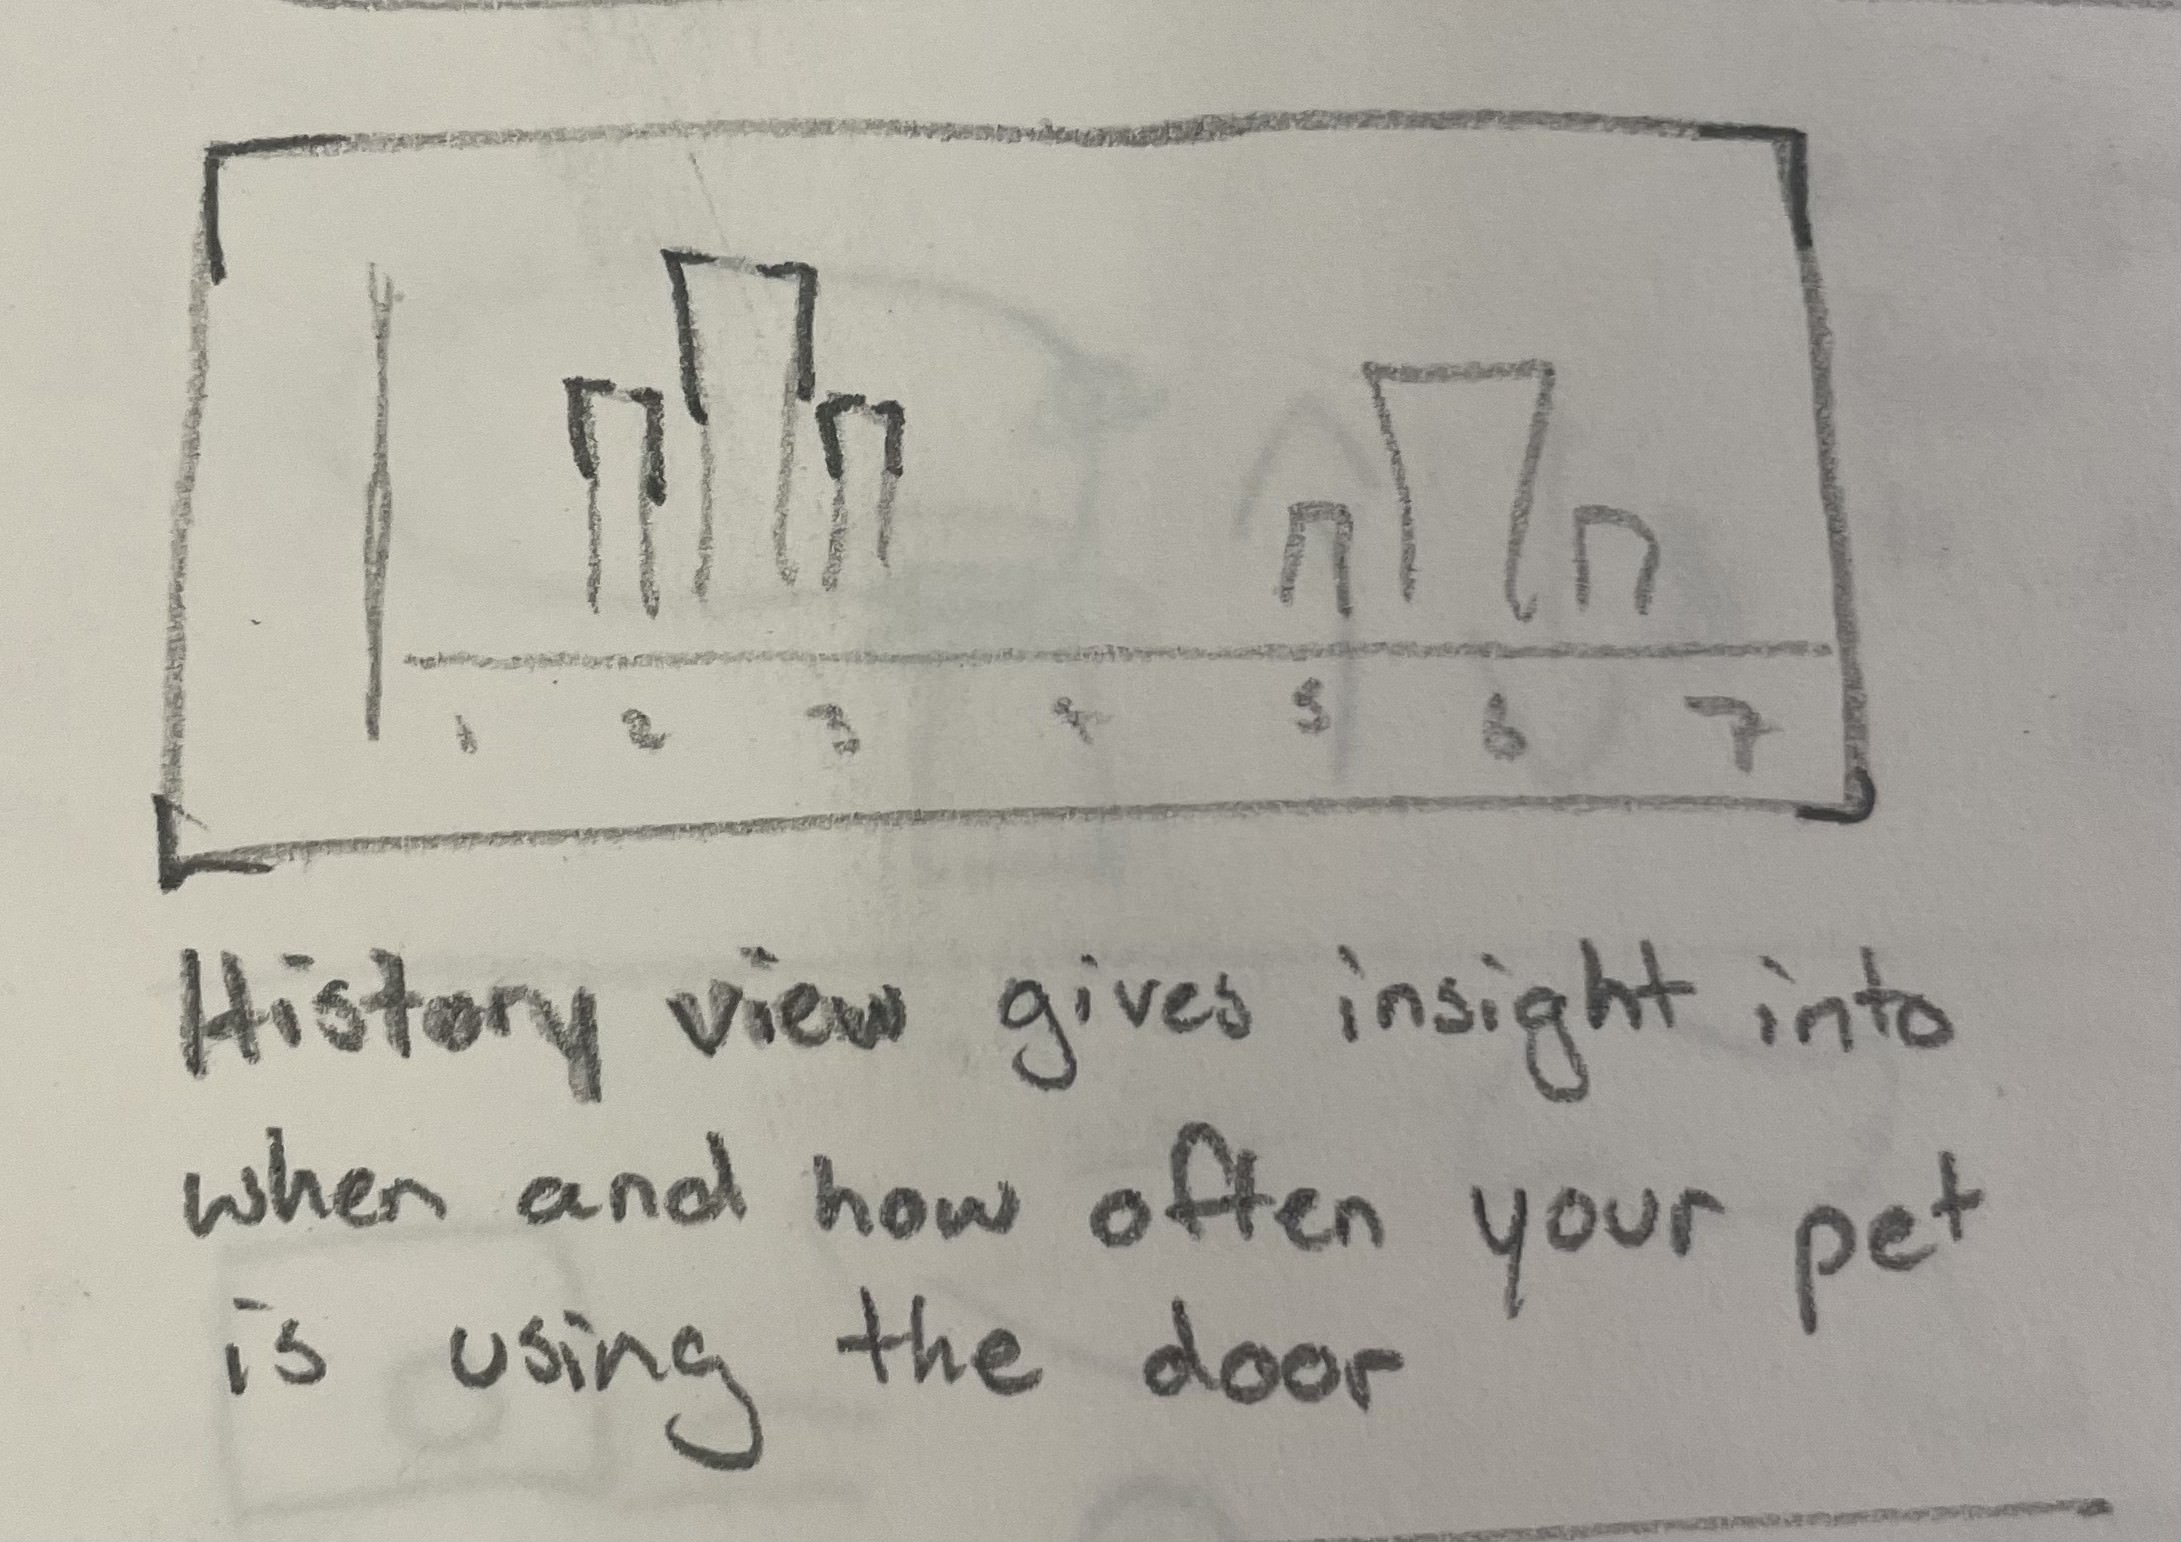 1 2 3 4 5 6 7
History view gives insight into
when and how often your pet
is using the door